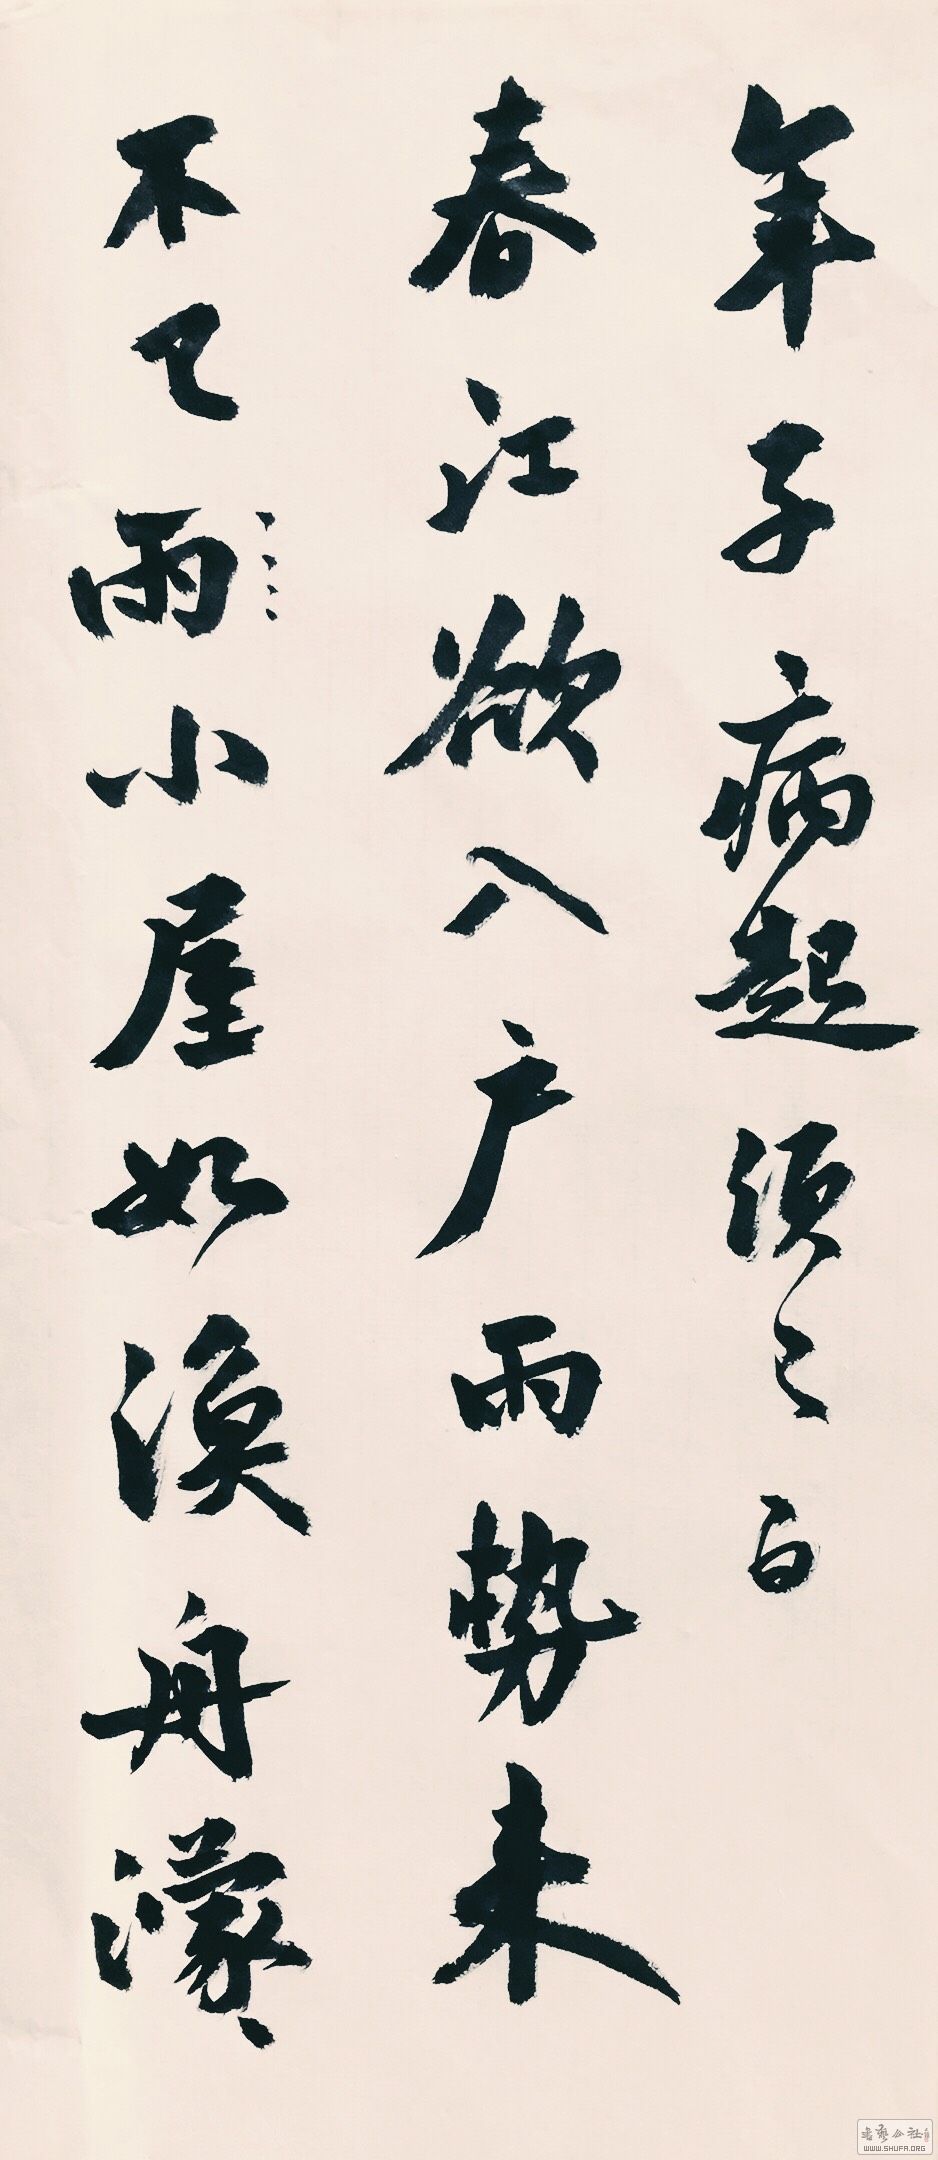 年子病起須已白
春江欲入户雨勢来
不已雨小屋如漁舟濛〻
書藝公社
WWW.SHUFA.ORG